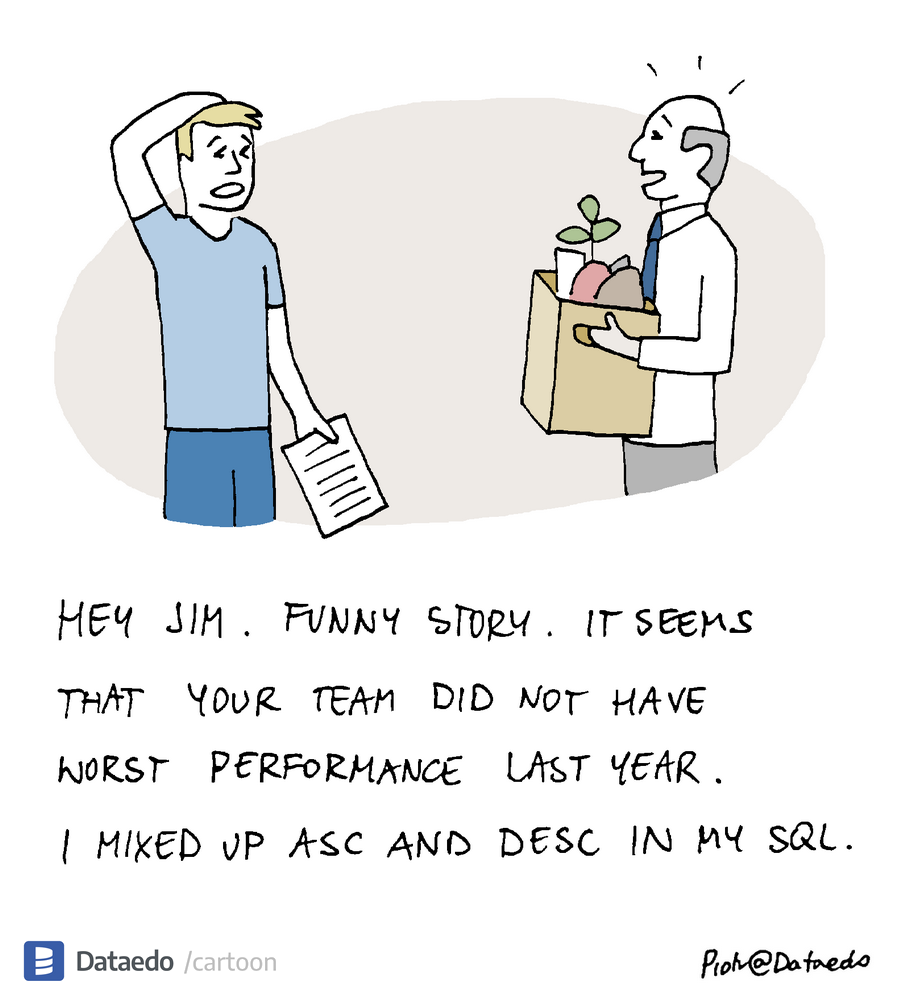 HEY JIM. FUNNY STORY. IT SEEMS
THAT YOUR TEAM DID NOT HAVE
WORST PERFORMANCE LAST YEAR.
I MIXED UP ASC AND DESC IN MY SQL.
Dataedo /cartoon
Piotr@Dataedo